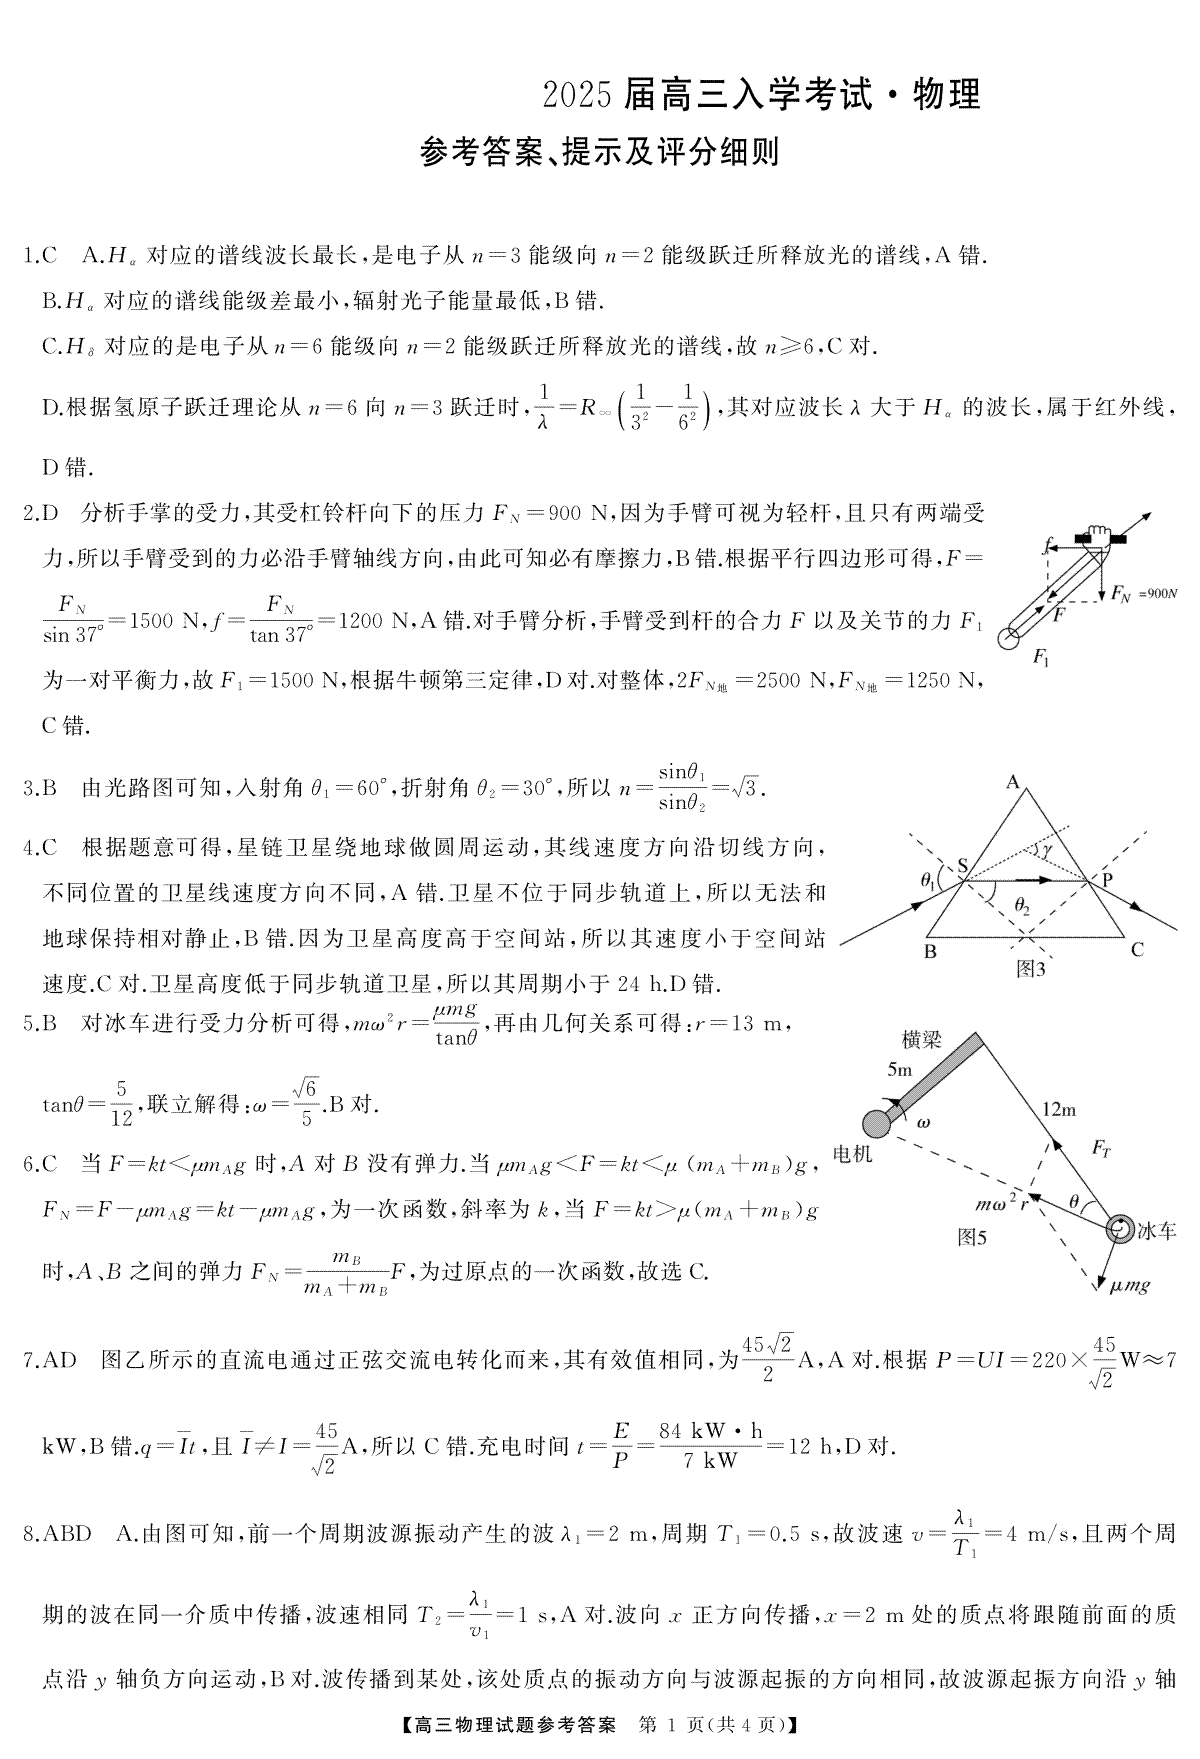 2025 届高三入学考试·物理
参考答案、提示及评分细则
1.C A.Hα 对应的谱线波长最长,是电子从 n=3 能级向 n=2 能级跃迁所释放光的谱线,A 错.
B.Hα 对应的谱线能级差最小,辐射光子能量最低,B 错.
C.Hδ 对应的是电子从 n=6 能级向 n=2 能级跃迁所释放光的谱线,故 n≥6,C 对.
D.根据氢原子跃迁理论从 n=6 向 n=3 跃迁时,1/λ=R∞(1/3²-1/6²),其对应波长 λ 大于 Hα 的波长,属于红外线,
D 错.
2.D 分析手掌的受力,其受杠铃杆向下的压力 FN=900 N,因为手臂可视为轻杆,且只有两端受
力,所以手臂受到的力必沿手臂轴线方向,由此可知必有摩擦力,B 错.根据平行四边形可得,F=
FN/sin 37°=1500 N,f=FN/tan 37°=1200 N,A 错.对手臂分析,手臂受到杆的合力 F 以及关节的力 F1
为一对平衡力,故 F1=1500 N,根据牛顿第三定律,D 对.对整体,2FN地=2500 N,FN地=1250 N,
C 错.
f
FN =900N
F
F1
3.B 由光路图可知,入射角 θ1=60°,折射角 θ2=30°,所以 n=sinθ1/sinθ2=√3.
4.C 根据题意可得,星链卫星绕地球做圆周运动,其线速度方向沿切线方向,
不同位置的卫星线速度方向不同,A 错.卫星不位于同步轨道上,所以无法和
地球保持相对静止,B 错.因为卫星高度高于空间站,所以其速度小于空间站
速度.C 对.卫星高度低于同步轨道卫星,所以其周期小于 24 h.D 错.
A
S
γ
θ1
P
θ2
B
C
图3
5.B 对冰车进行受力分析可得,mω²r=μmg/tanθ,再由几何关系可得:r=13 m,
tanθ=5/12,联立解得:ω=√6/5.B 对.
6.C 当 F=kt<μmAg 时,A 对 B 没有弹力.当 μmAg<F=kt<μ(mA+mB)g,
FN=F-μmAg=kt-μmAg,为一次函数,斜率为 k,当 F=kt>μ(mA+mB)g
时,A、B 之间的弹力 FN=mB/(mA+mB)F,为过原点的一次函数,故选 C.
横梁
5m
12m
ω
FT
电机
mω²r
θ
图5
冰车
μmg
7.AD 图乙所示的直流电通过正弦交流电转化而来,其有效值相同,为45√2/2 A,A 对.根据 P=UI=220×45/√2 W≈7
kW,B 错.q=I̅t,且 I̅≠I=45/√2 A,所以 C 错.充电时间 t=E/P=84 kW·h/7 kW=12 h,D 对.
8.ABD A.由图可知,前一个周期波源振动产生的波 λ1=2 m,周期 T1=0.5 s,故波速 v=λ1/T1=4 m/s,且两个周
期的波在同一介质中传播,波速相同 T2=λ1/v1=1 s,A 对.波向 x 正方向传播,x=2 m 处的质点将跟随前面的质
点沿 y 轴负方向运动,B 对.波传播到某处,该处质点的振动方向与波源起振的方向相同,故波源起振方向沿 y 轴
【高三物理试题参考答案 第 1 页(共 4 页)】